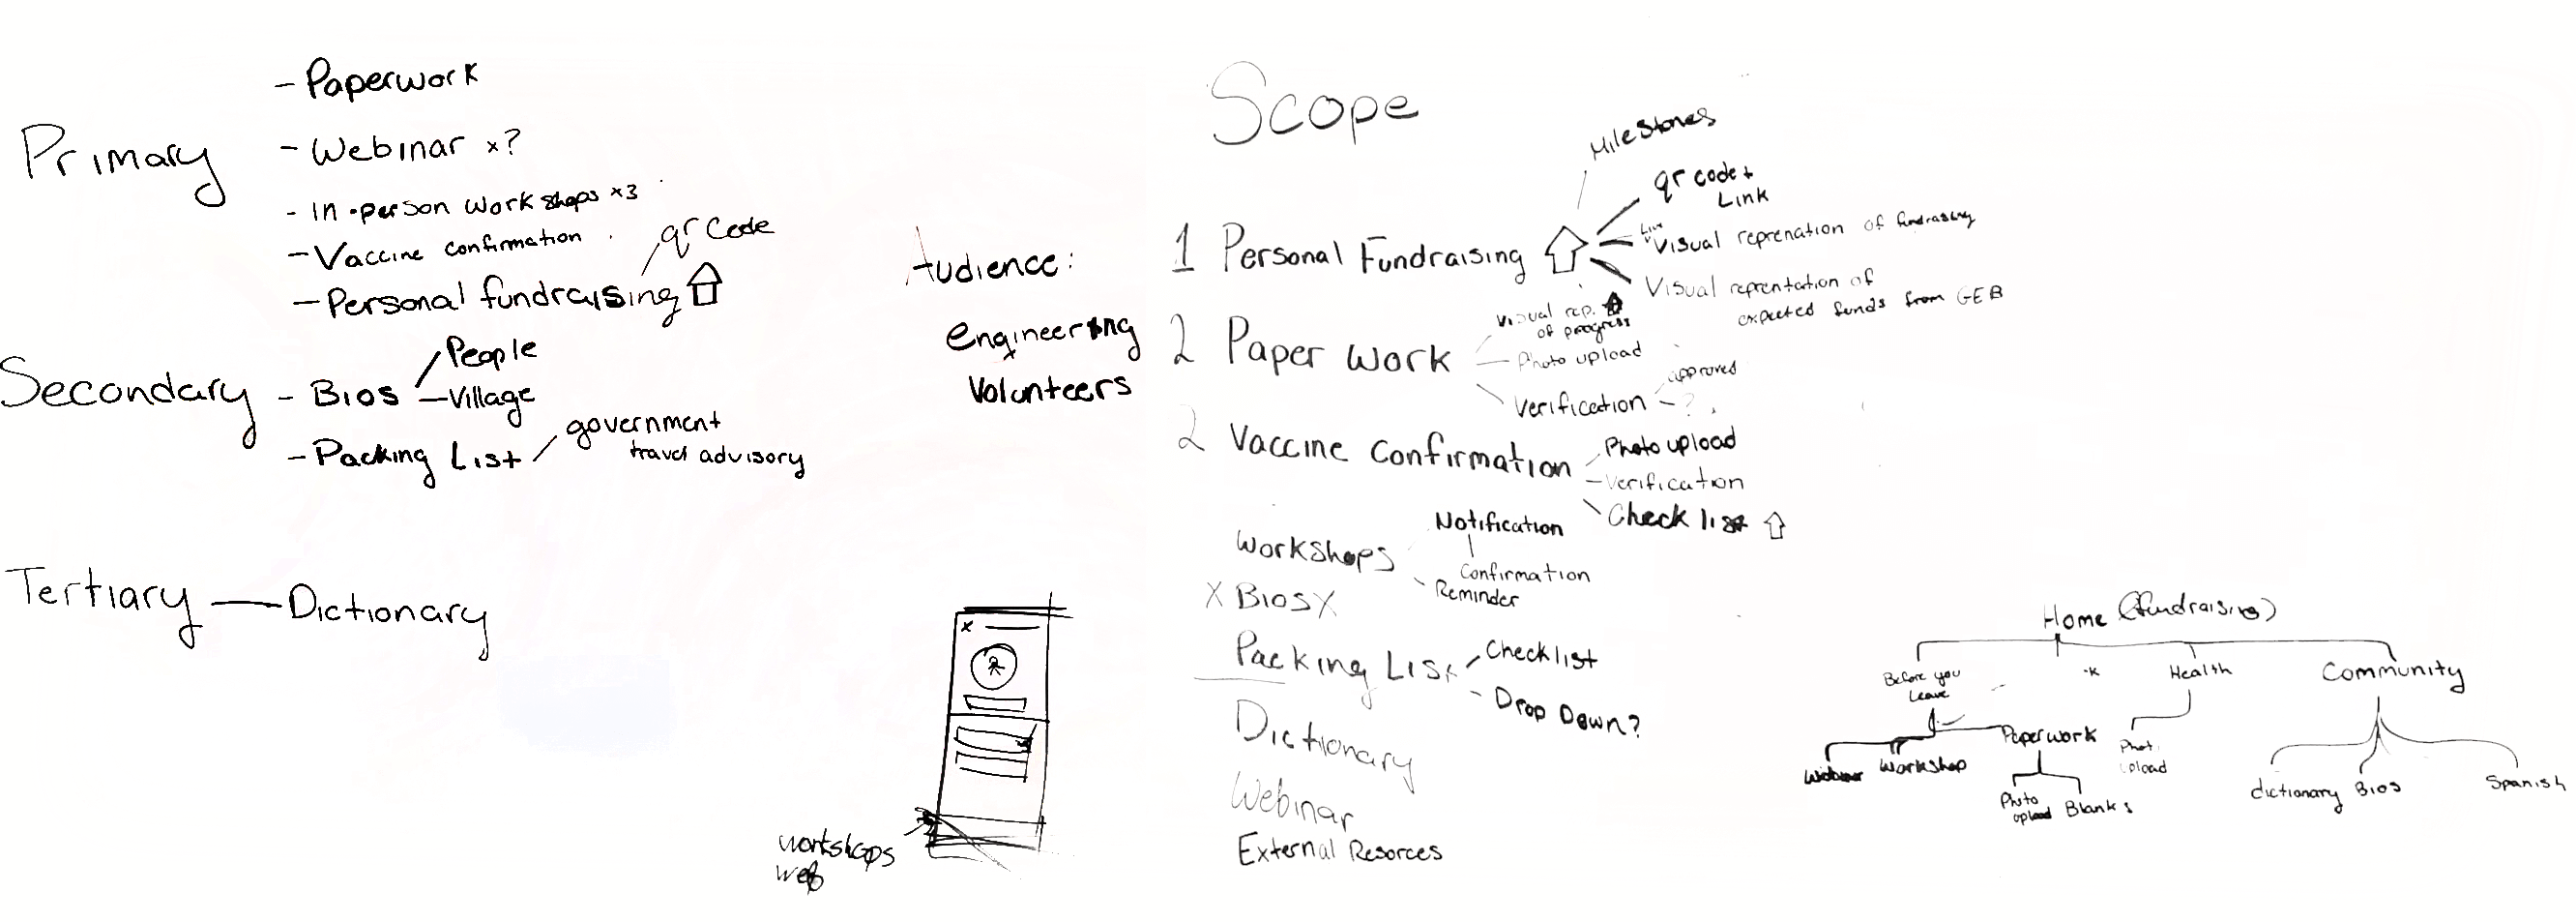 Primary
- Paperwork
- Webinar x?
- In-person workshops x3
- Vaccine confirmation
- Personal fundraising
qr code
Secondary
- Bios
People
Village
- Packing List
government
travel advisory
Tertiary — Dictionary
Audience:
engineering
Volunteers
x
workshops
web
Scope
1 Personal Fundraising
Milestones
qr code +
Link
Live
Visual reprenation of fundrasing
Visual reprentation of
expected funds from GEB
2 Paper work
Visual rep.
of progress
Photo upload
Verification
approved
?
2 Vaccine Confirmation
Photo upload
Verification
Check list
Workshops
Notification
Confirmation
Reminder
X Bios X
Packing List
Checklist
Drop Down?
Dictionary
Webinar
External Resorces
Home (fundraising)
Before you
Leave
Health
Community
Webinar
Workshop
Paperwork
Photo
upload
Blanks
Phot
upload
dictionary
Bios
Spanish